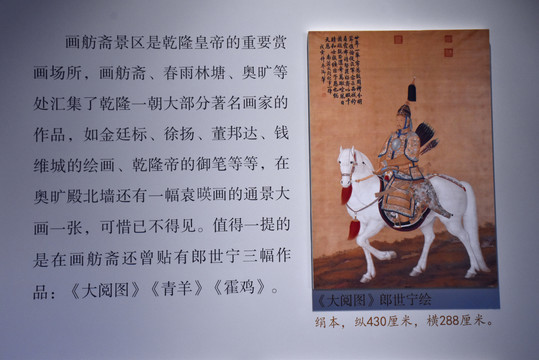 画舫斋景区是乾隆皇帝的重要赏
画场所，画舫斋、春雨林塘、奥旷等
处汇集了乾隆一朝大部分著名画家的
作品，如金廷标、徐扬、董邦达、钱
维城的绘画、乾隆帝的御笔等等，在
奥旷殿北墙还有一幅袁暎画的通景大
画一张，可惜已不得见。值得一提的
是在画舫斋还曾贴有郎世宁三幅作
品：《大阅图》《青羊》《霍鸡》。
《大阅图》郎世宁绘
绢本，纵430厘米，横288厘米。